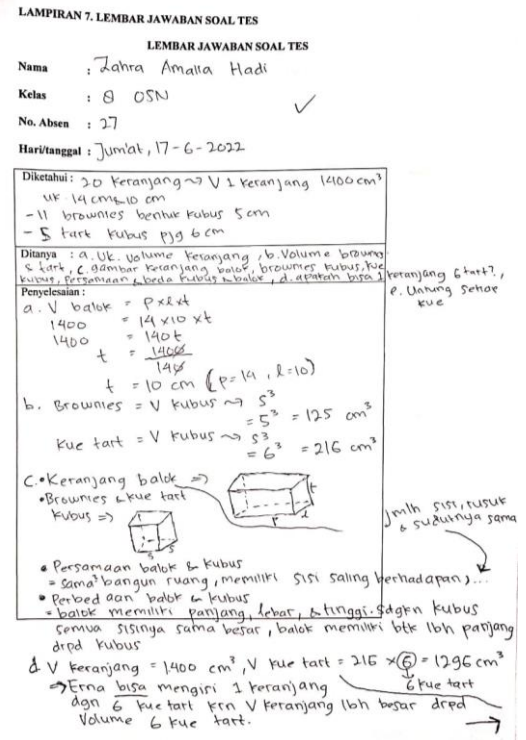 LAMPIRAN 7. LEMBAR JAWABAN SOAL TES
LEMBAR JAWABAN SOAL TES
Nama : Zahra Amalia Hadi
Kelas : 8 OSN
No. Absen : 27
Hari/tanggal : Jum'at, 17-6-2022
Diketahui : 20 keranjang ~> V 1 keranjang 1400 cm³
uk 14 cm & 10 cm
- 11 brownies bentuk kubus 5 cm
- 5 tart kubus pjg 6 cm
Ditanya : a. Uk. Volume keranjang, b. Volume browns
& tart, c. gambar keranjang balok, brownies kubus, kue
kubus, Persamaan & beda kubus & balok, d. apakah bisa 1 keranjang 6 tart?,
e. Untung setiap
kue
Penyelesaian :
a. V balok = p x l x t
1400 = 14 x 10 x t
1400 = 140 t
t = 1400
140
t = 10 cm (p=14, l=10)
b. Brownies = V kubus ~> s³
= 5³ = 125 cm³
kue tart = V kubus ~> s³
= 6³ = 216 cm³
C. • Keranjang balok =>
t
p l
• Brownies & kue tart
kubus =>
s s
jmlh sisi, rusuk
& sudutnya sama
• Persamaan balok & kubus
= sama² bangun ruang, memiliki sisi saling berhadapan, ...
• Perbedaan balok & kubus
= balok memiliki panjang, lebar, & tinggi. Sdgkn kubus
semua sisinya sama besar, balok memiliki btk lbh panjang
drpd kubus
d V keranjang = 1400 cm³, V kue tart = 216 x 6 = 1296 cm³
6 kue tart
=> Erna bisa mengiri 1 keranjang
dgn 6 kue tart krn V keranjang lbh besar drpd
Volume 6 kue tart.